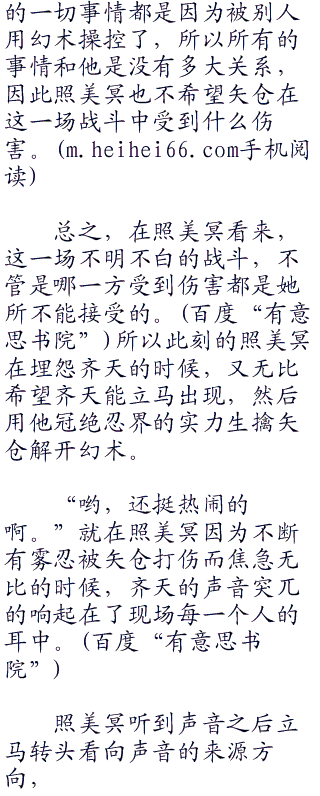 的一切事情都是因为被别人
用幻术操控了，所以所有的
事情和他是没有多大关系，
因此照美冥也不希望矢仓在
这一场战斗中受到什么伤
害。(m.heihei66.com手机阅
读)
总之，在照美冥看来，
这一场不明不白的战斗，不
管是哪一方受到伤害都是她
所不能接受的。(百度“有意
思书院”)所以此刻的照美冥
在埋怨齐天的时候，又无比
希望齐天能立马出现，然后
用他冠绝忍界的实力生擒矢
仓解开幻术。
“哟，还挺热闹的
啊。”就在照美冥因为不断
有雾忍被矢仓打伤而焦急无
比的时候，齐天的声音突兀
的响起在了现场每一个人的
耳中。(百度“有意思书
院”)
照美冥听到声音之后立
马转头看向声音的来源方
向，